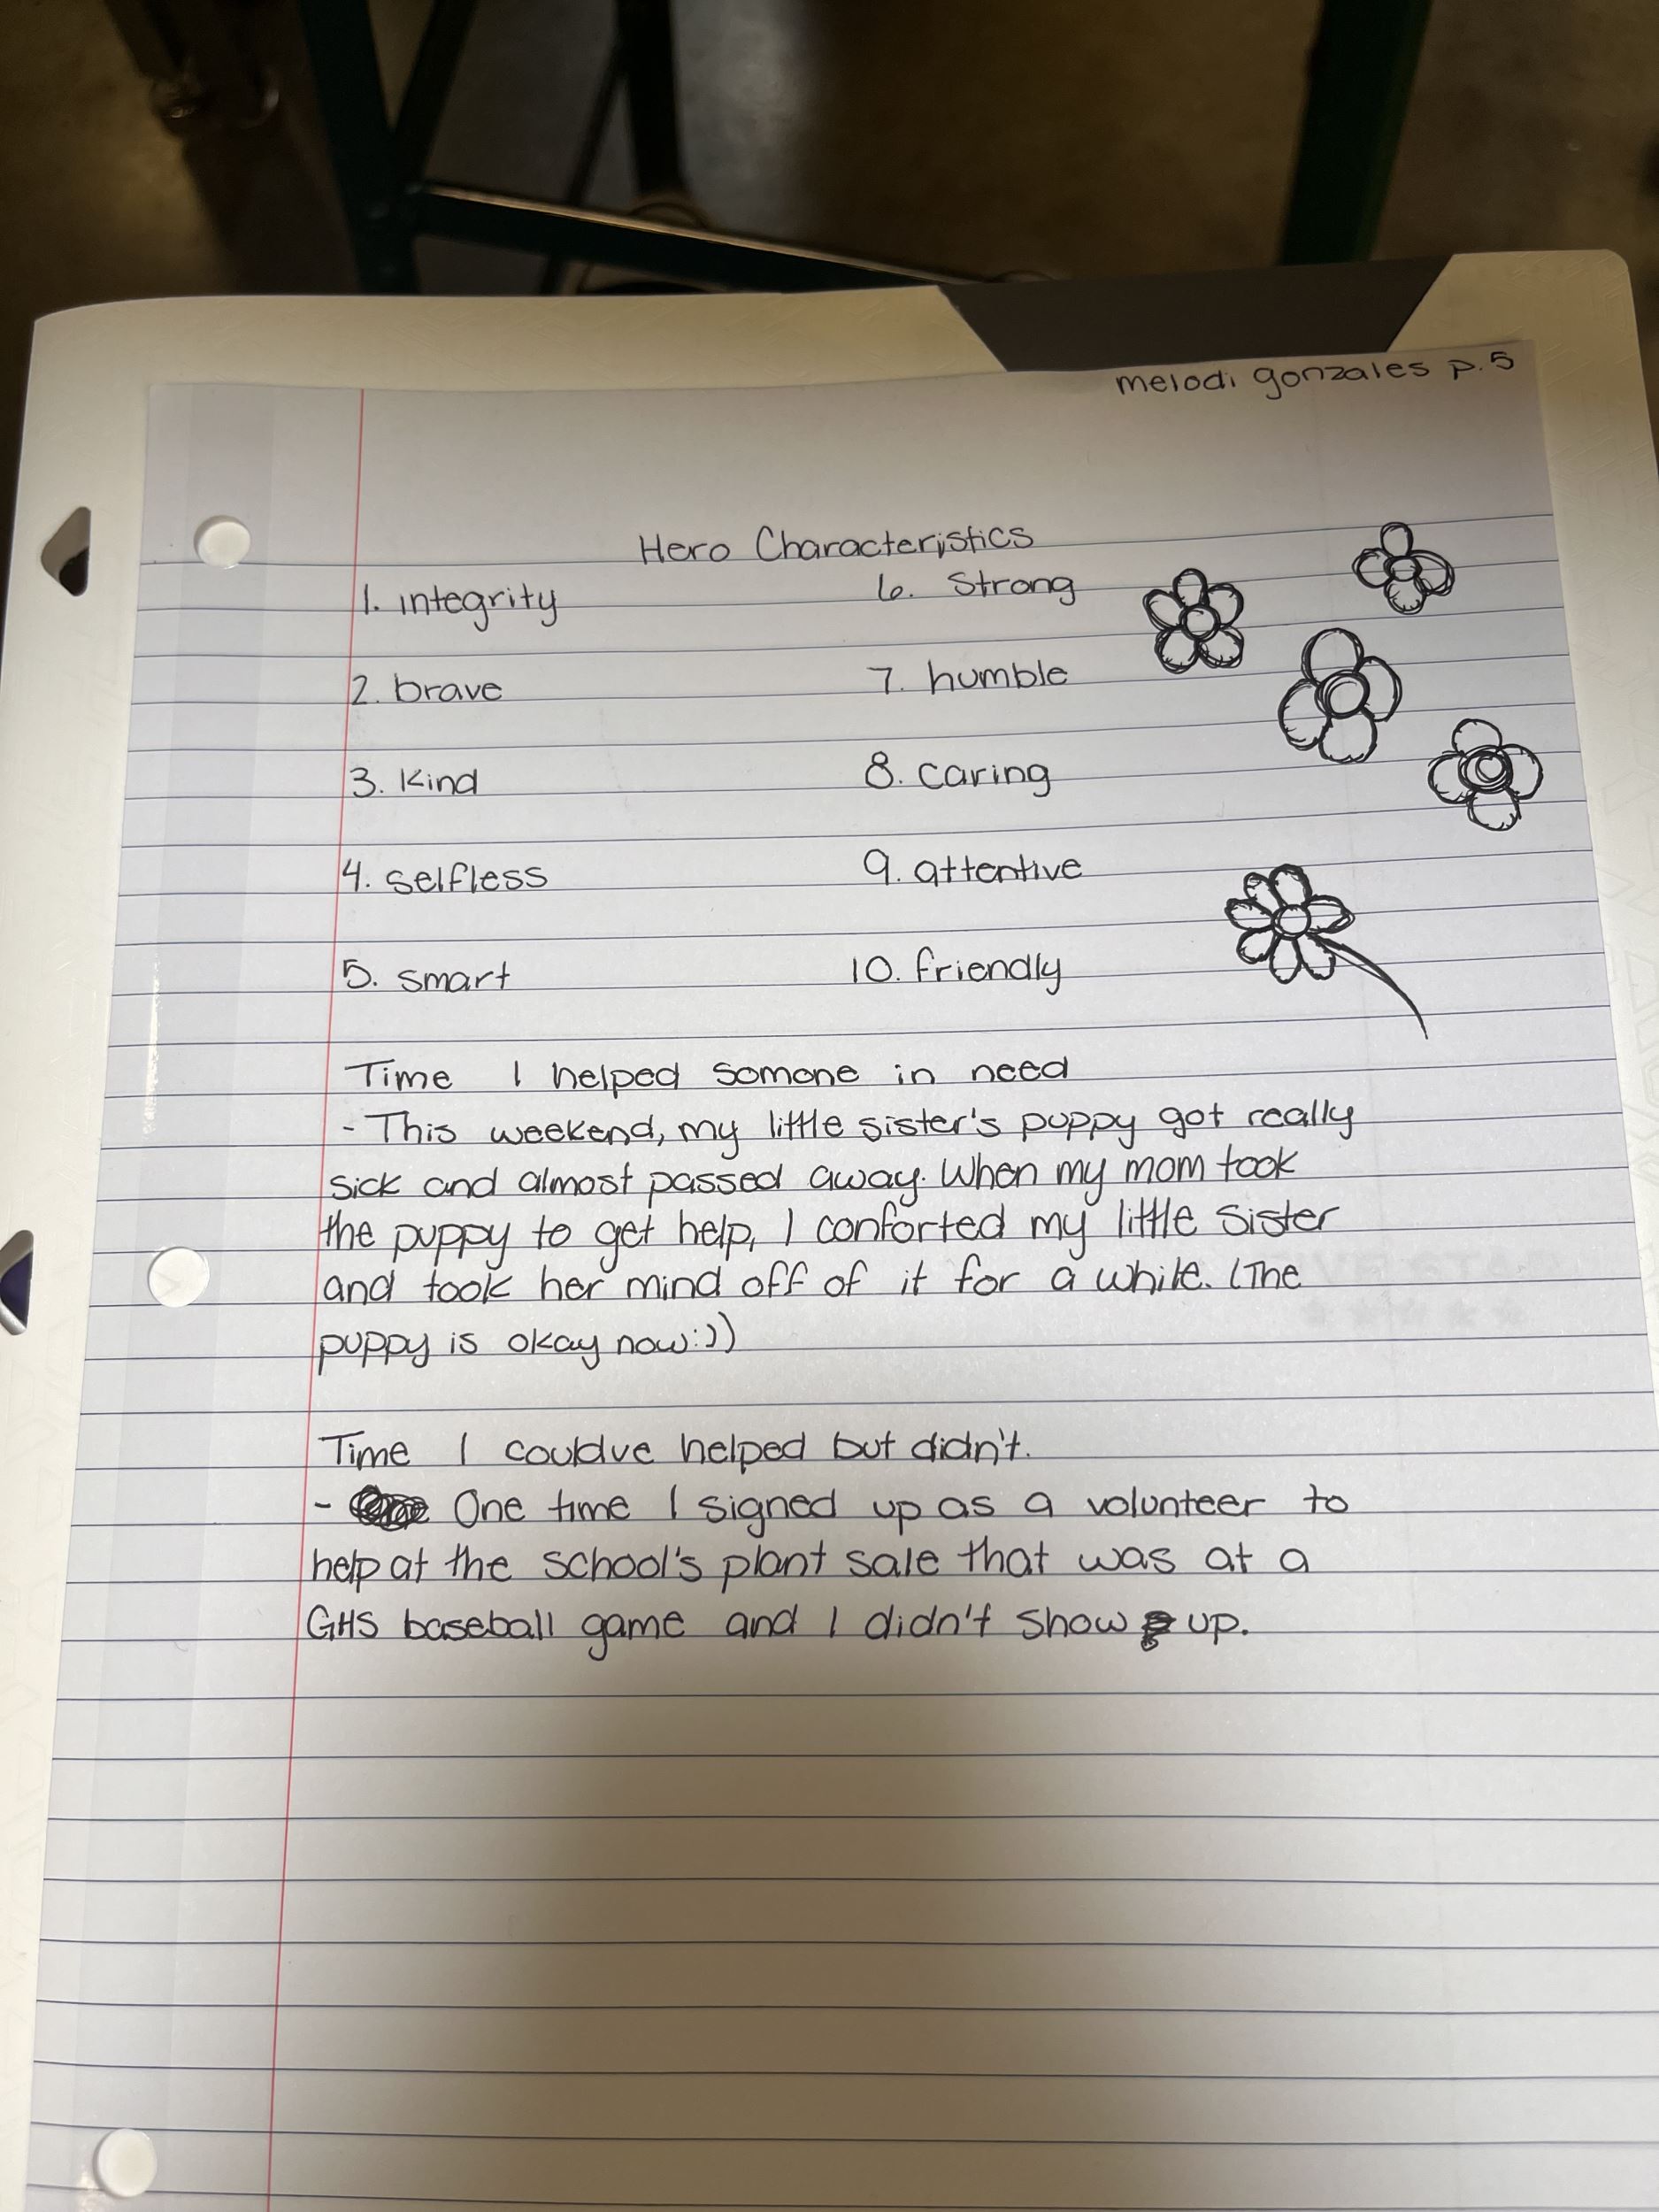 melodi gonzales p.5
Hero Characteristics
1. integrity
6. Strong
2. brave
7. humble
3. Kind
8. caring
4. selfless
9. attentive
5. smart
10. friendly
Time I helped somone in need
- This weekend, my little sister's puppy got really
sick and almost passed away. When my mom took
the puppy to get help, I conforted my little sister
and took her mind off of it for a while. (The
puppy is okay now:))
Time I couldve helped but didn't.
- One time I signed up as a volunteer to
help at the school's plant sale that was at a
GHS baseball game and I didn't show up.